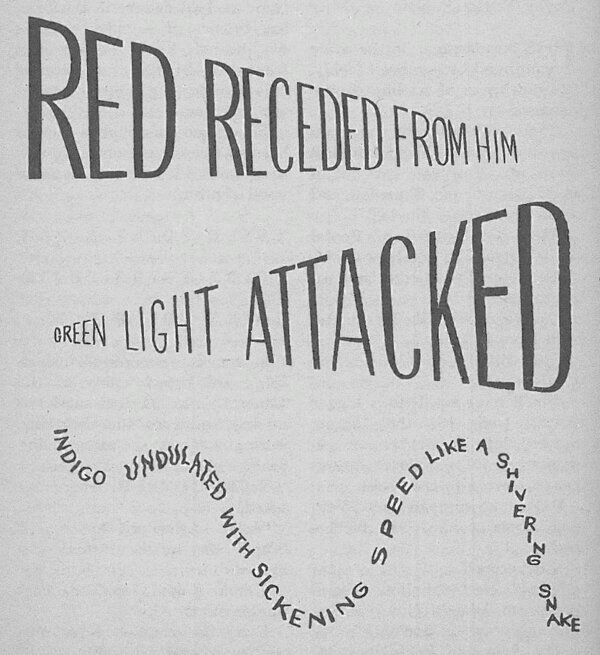 RED RECEDED FROM HIM
GREEN LIGHT ATTACKED
INDIGO UNDULATED WITH SICKENING SPEED LIKE A SHIVERING SNAKE